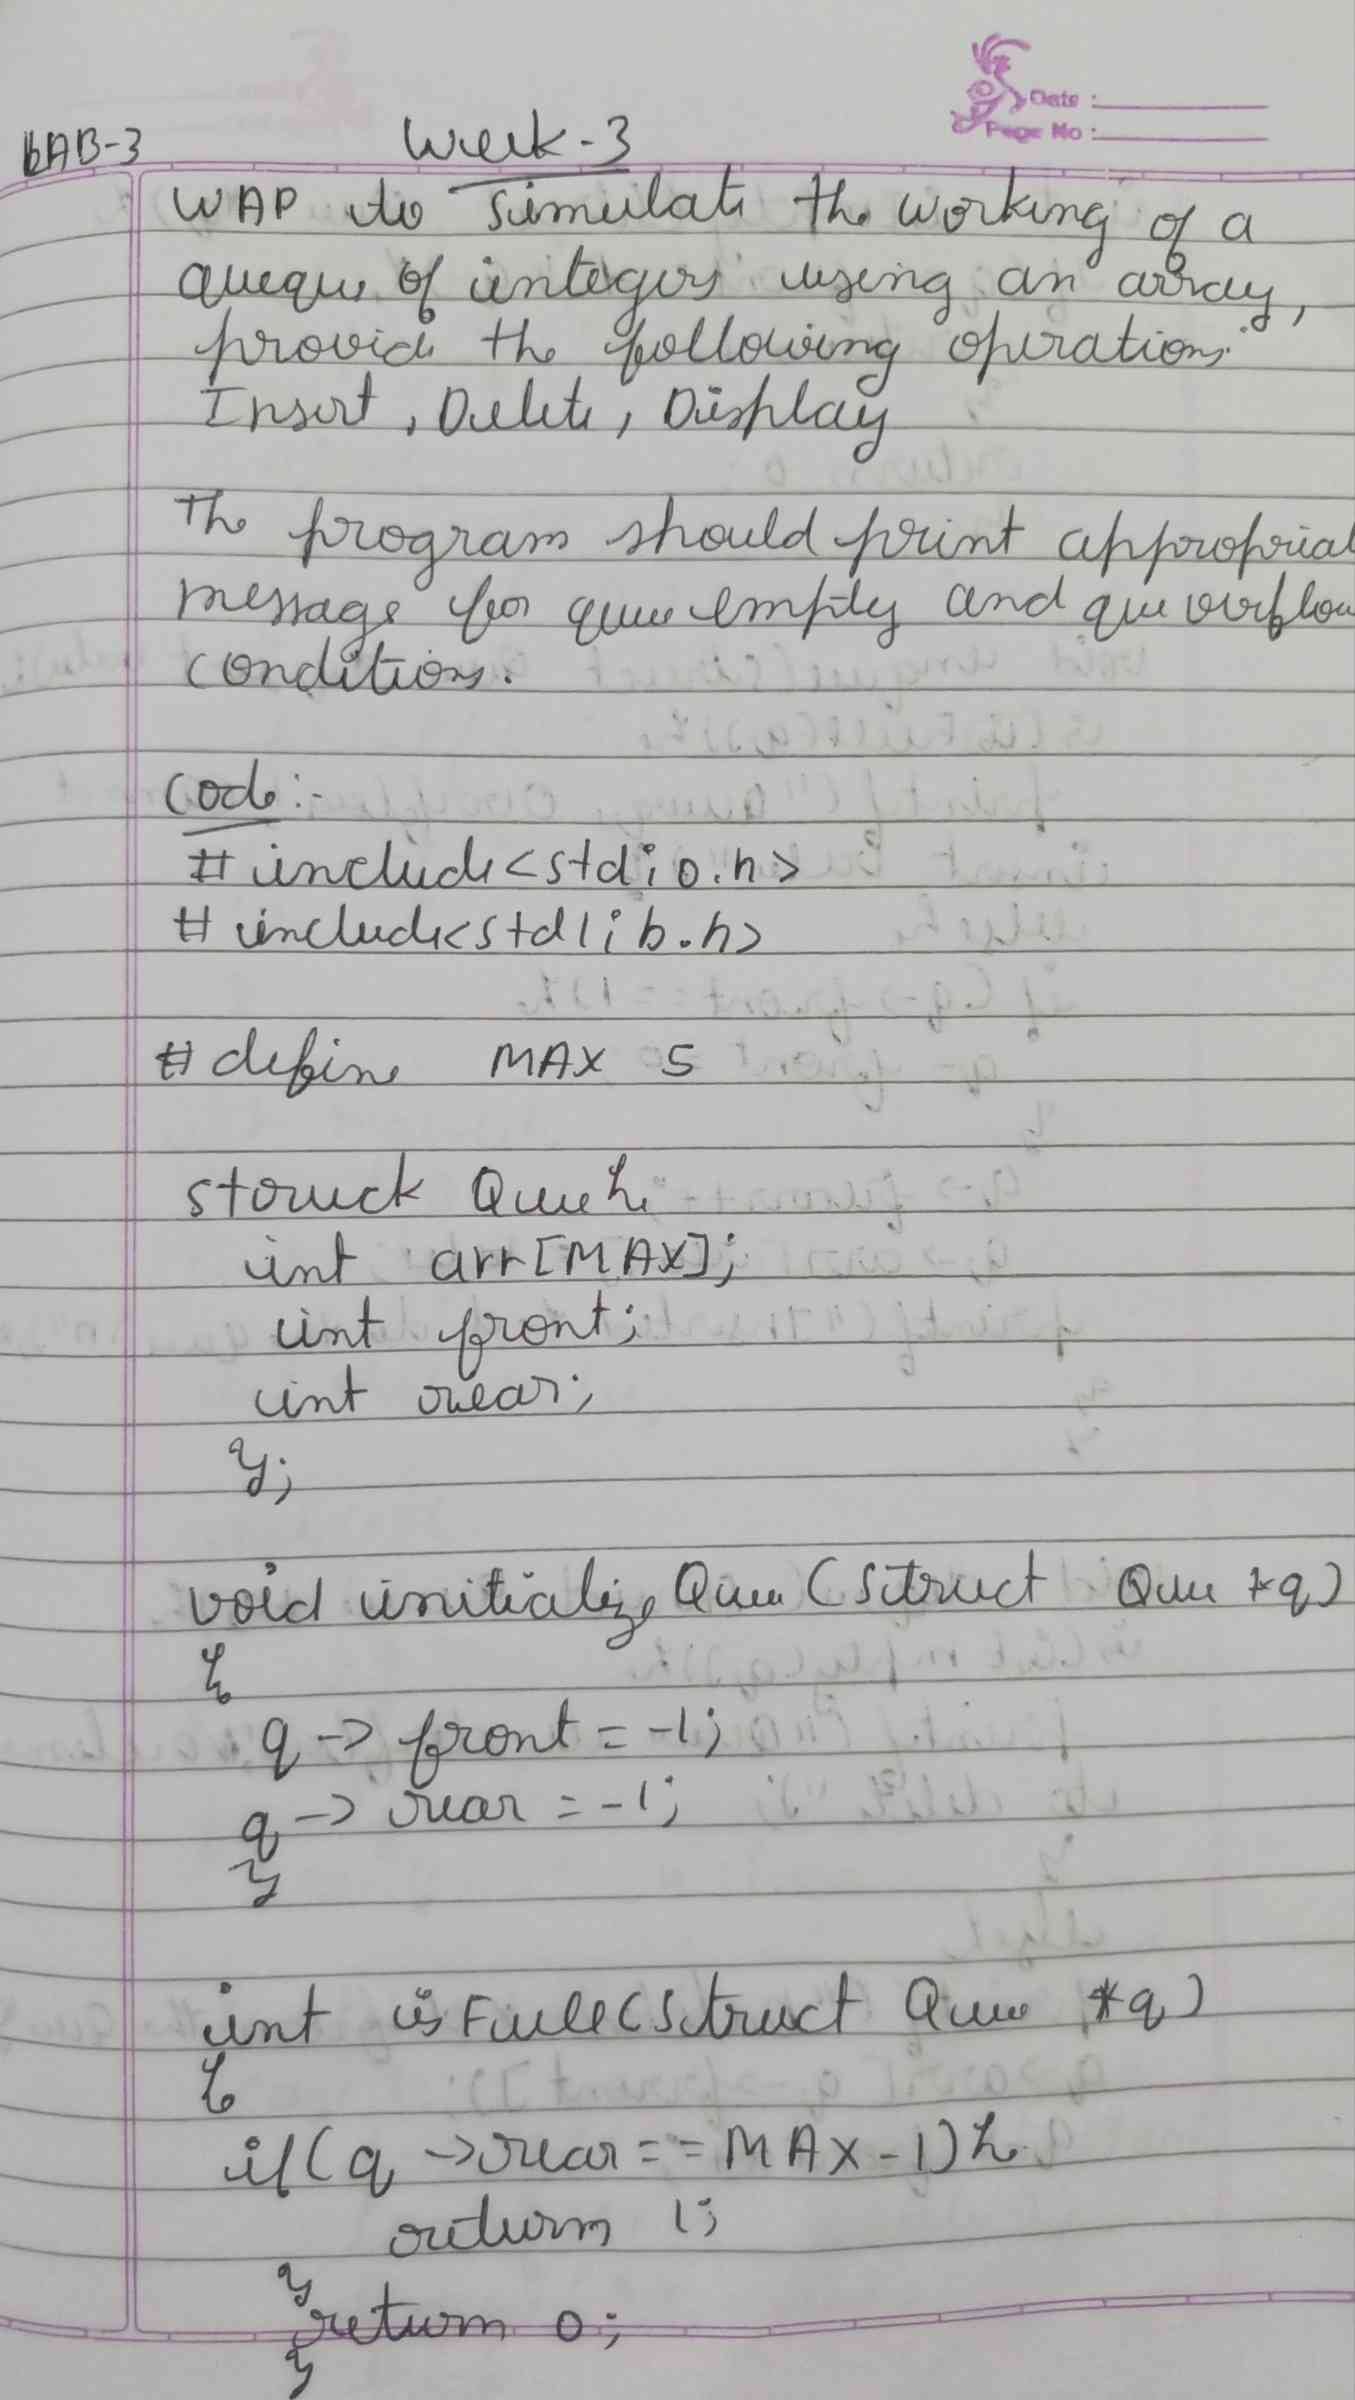 Date :
Page No :
LAB-3
Week-3
WAP to simulate the working of a
queque of integers using an array,
provide the following operations.
Insert, Delete, Display
The program should print appropriat
message for queue empty and que overflow
conditions.
Code:-
#include<stdio.h>
#include<stdlib.h>
#define MAX 5
struck Queue{
int arr[MAX];
int front;
int rear;
};
void initialize Queue (struct Queue *q)
{
q -> front = -1;
q -> rear = -1;
}
int isFull(struct Queue *q)
{
if(q ->rear == MAX-1){
return 1;
}
return 0;
}